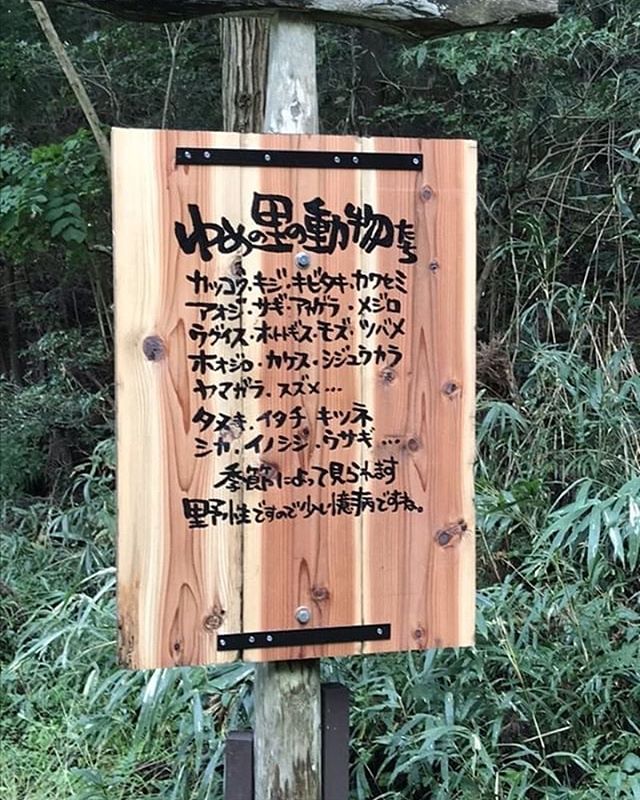 ゆめの里の動物たち
カッコウ・キジ・キビタキ・カワセミ
アオジ・サギ・アカゲラ・メジロ
ウグイス・ホトトギス・モズ・ツバメ
ホオジロ・カケス・シジュウカラ
ヤマガラ・スズメ…
タヌキ・イタチ キツネ
シカ・イノシシ・ウサギ…
季節によって見られます
野性ですので少し憶病ですね。